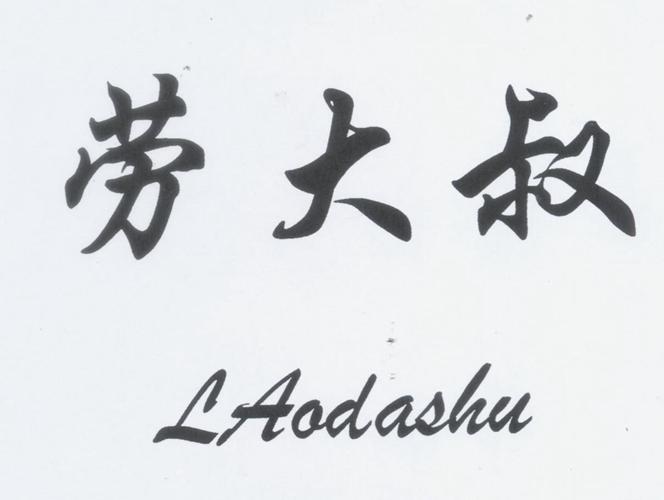 劳大叔
LAodashu